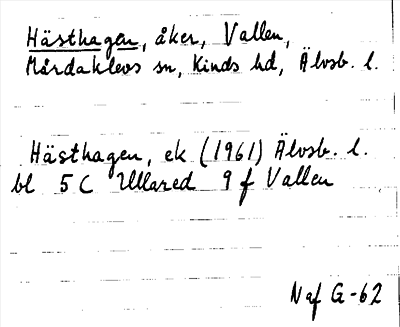 Hästhagen, åker, Vallen,
Mårdaklevs sn, Kinds hd, Älvsb. l.
Hästhagen, ek (1961) Älvsb. l.
bl 5 C Ullared 9 f Vallen
Naf G-62